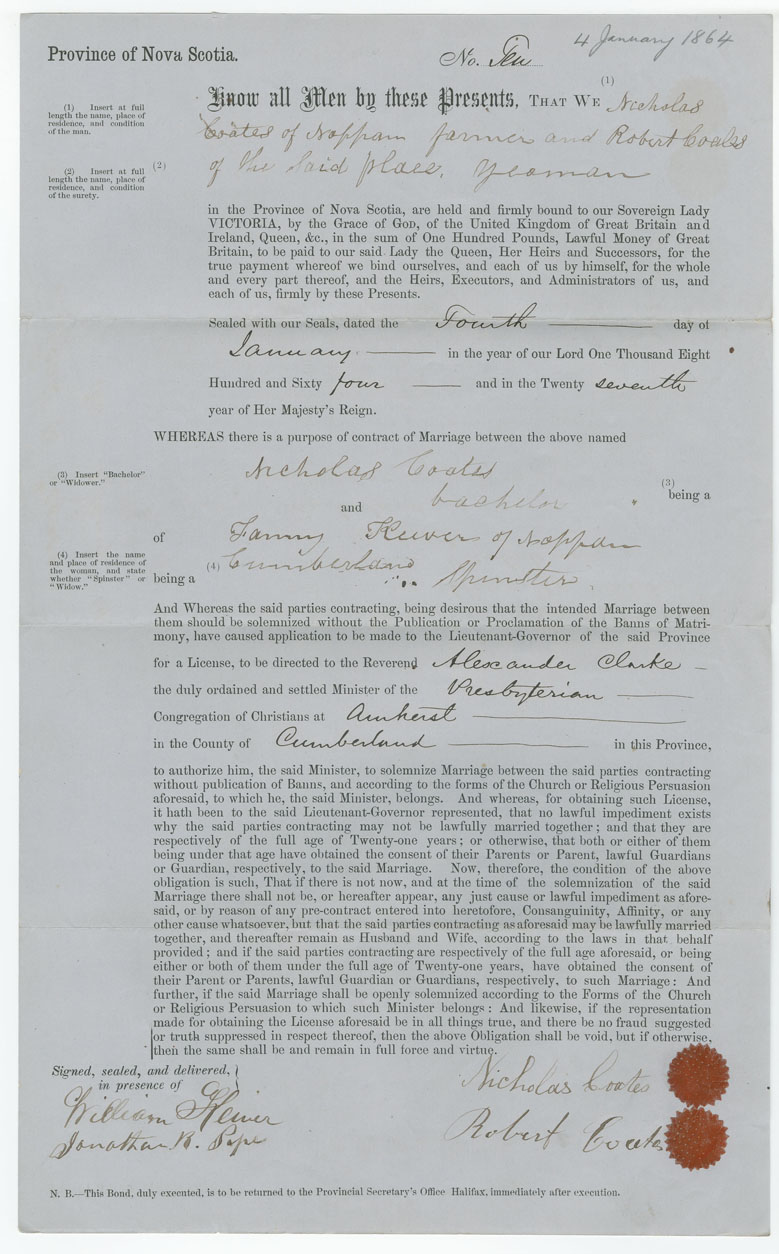 4 January 1864
Province of Nova Scotia.
No. Ten
(1)
Know all Men by these Presents, THAT WE Nicholas
Coates of Nappan farmer and Robert Coates
(2) of the said place, Yeoman
(1) Insert at full
length the name, place of
residence, and condition
of the man.
(2) Insert at full
length the name, place of
residence, and condition
of the surety.
in the Province of Nova Scotia, are held and firmly bound to our Sovereign Lady
VICTORIA, by the Grace of GOD, of the United Kingdom of Great Britain and
Ireland, Queen, &c., in the sum of One Hundred Pounds, Lawful Money of Great
Britain, to be paid to our said Lady the Queen, Her Heirs and Successors, for the
true payment whereof we bind ourselves, and each of us by himself, for the whole
and every part thereof, and the Heirs, Executors, and Administrators of us, and
each of us, firmly by these Presents.
Sealed with our Seals, dated the Fourth day of
January in the year of our Lord One Thousand Eight
Hundred and Sixty four and in the Twenty seventh
year of Her Majesty's Reign.
WHEREAS there is a purpose of contract of Marriage between the above named
(3) Insert "Bachelor"
or "Widower."
Nicholas Coates
(3)
being a
bachelor
and
of Fanny Keiver of Nappan
(4) Insert the name
and place of residence of
the woman, and state
whether "Spinster" or
"Widow."
(4) Cumberland
being a Spinster.
And Whereas the said parties contracting, being desirous that the intended Marriage between
them should be solemnized without the Publication or Proclamation of the Banns of Matri-
mony, have caused application to be made to the Lieutenant-Governor of the said Province
for a License, to be directed to the Reverend Alexander Clarke
the duly ordained and settled Minister of the Presbyterian
Congregation of Christians at Amherst
in the County of Cumberland in this Province,
to authorize him, the said Minister, to solemnize Marriage between the said parties contracting
without publication of Banns, and according to the forms of the Church or Religious Persuasion
aforesaid, to which he, the said Minister, belongs. And whereas, for obtaining such License,
it hath been to the said Lieutenant-Governor represented, that no lawful impediment exists
why the said parties contracting may not be lawfully married together; and that they are
respectively of the full age of Twenty-one years; or otherwise, that both or either of them
being under that age have obtained the consent of their Parents or Parent, lawful Guardians
or Guardian, respectively, to the said Marriage. Now, therefore, the condition of the above
obligation is such, That if there is not now, and at the time of the solemnization of the said
Marriage there shall not be, or hereafter appear, any just cause or lawful impediment as afore-
said, or by reason of any pre-contract entered into heretofore, Consanguinity, Affinity, or any
other cause whatsoever, but that the said parties contracting as aforesaid may be lawfully married
together, and thereafter remain as Husband and Wife, according to the laws in that behalf
provided; and if the said parties contracting are respectively of the full age aforesaid, or being
either or both of them under the full age of Twenty-one years, have obtained the consent of
their Parent or Parents, lawful Guardian or Guardians, respectively, to such Marriage: And
further, if the said Marriage shall be openly solemnized according to the Forms of the Church
or Religious Persuasion to which such Minister belongs: And likewise, if the representation
made for obtaining the License aforesaid be in all things true, and there be no fraud suggested
or truth suppressed in respect thereof, then the above Obligation shall be void, but if otherwise,
then the same shall be and remain in full force and virtue.
Signed, sealed, and delivered,
in presence of
William Keiver
Jonathan R. Pipe
Nicholas Coates
Robert Coates
N. B.—This Bond, duly executed, is to be returned to the Provincial Secretary's Office Halifax, immediately after execution.